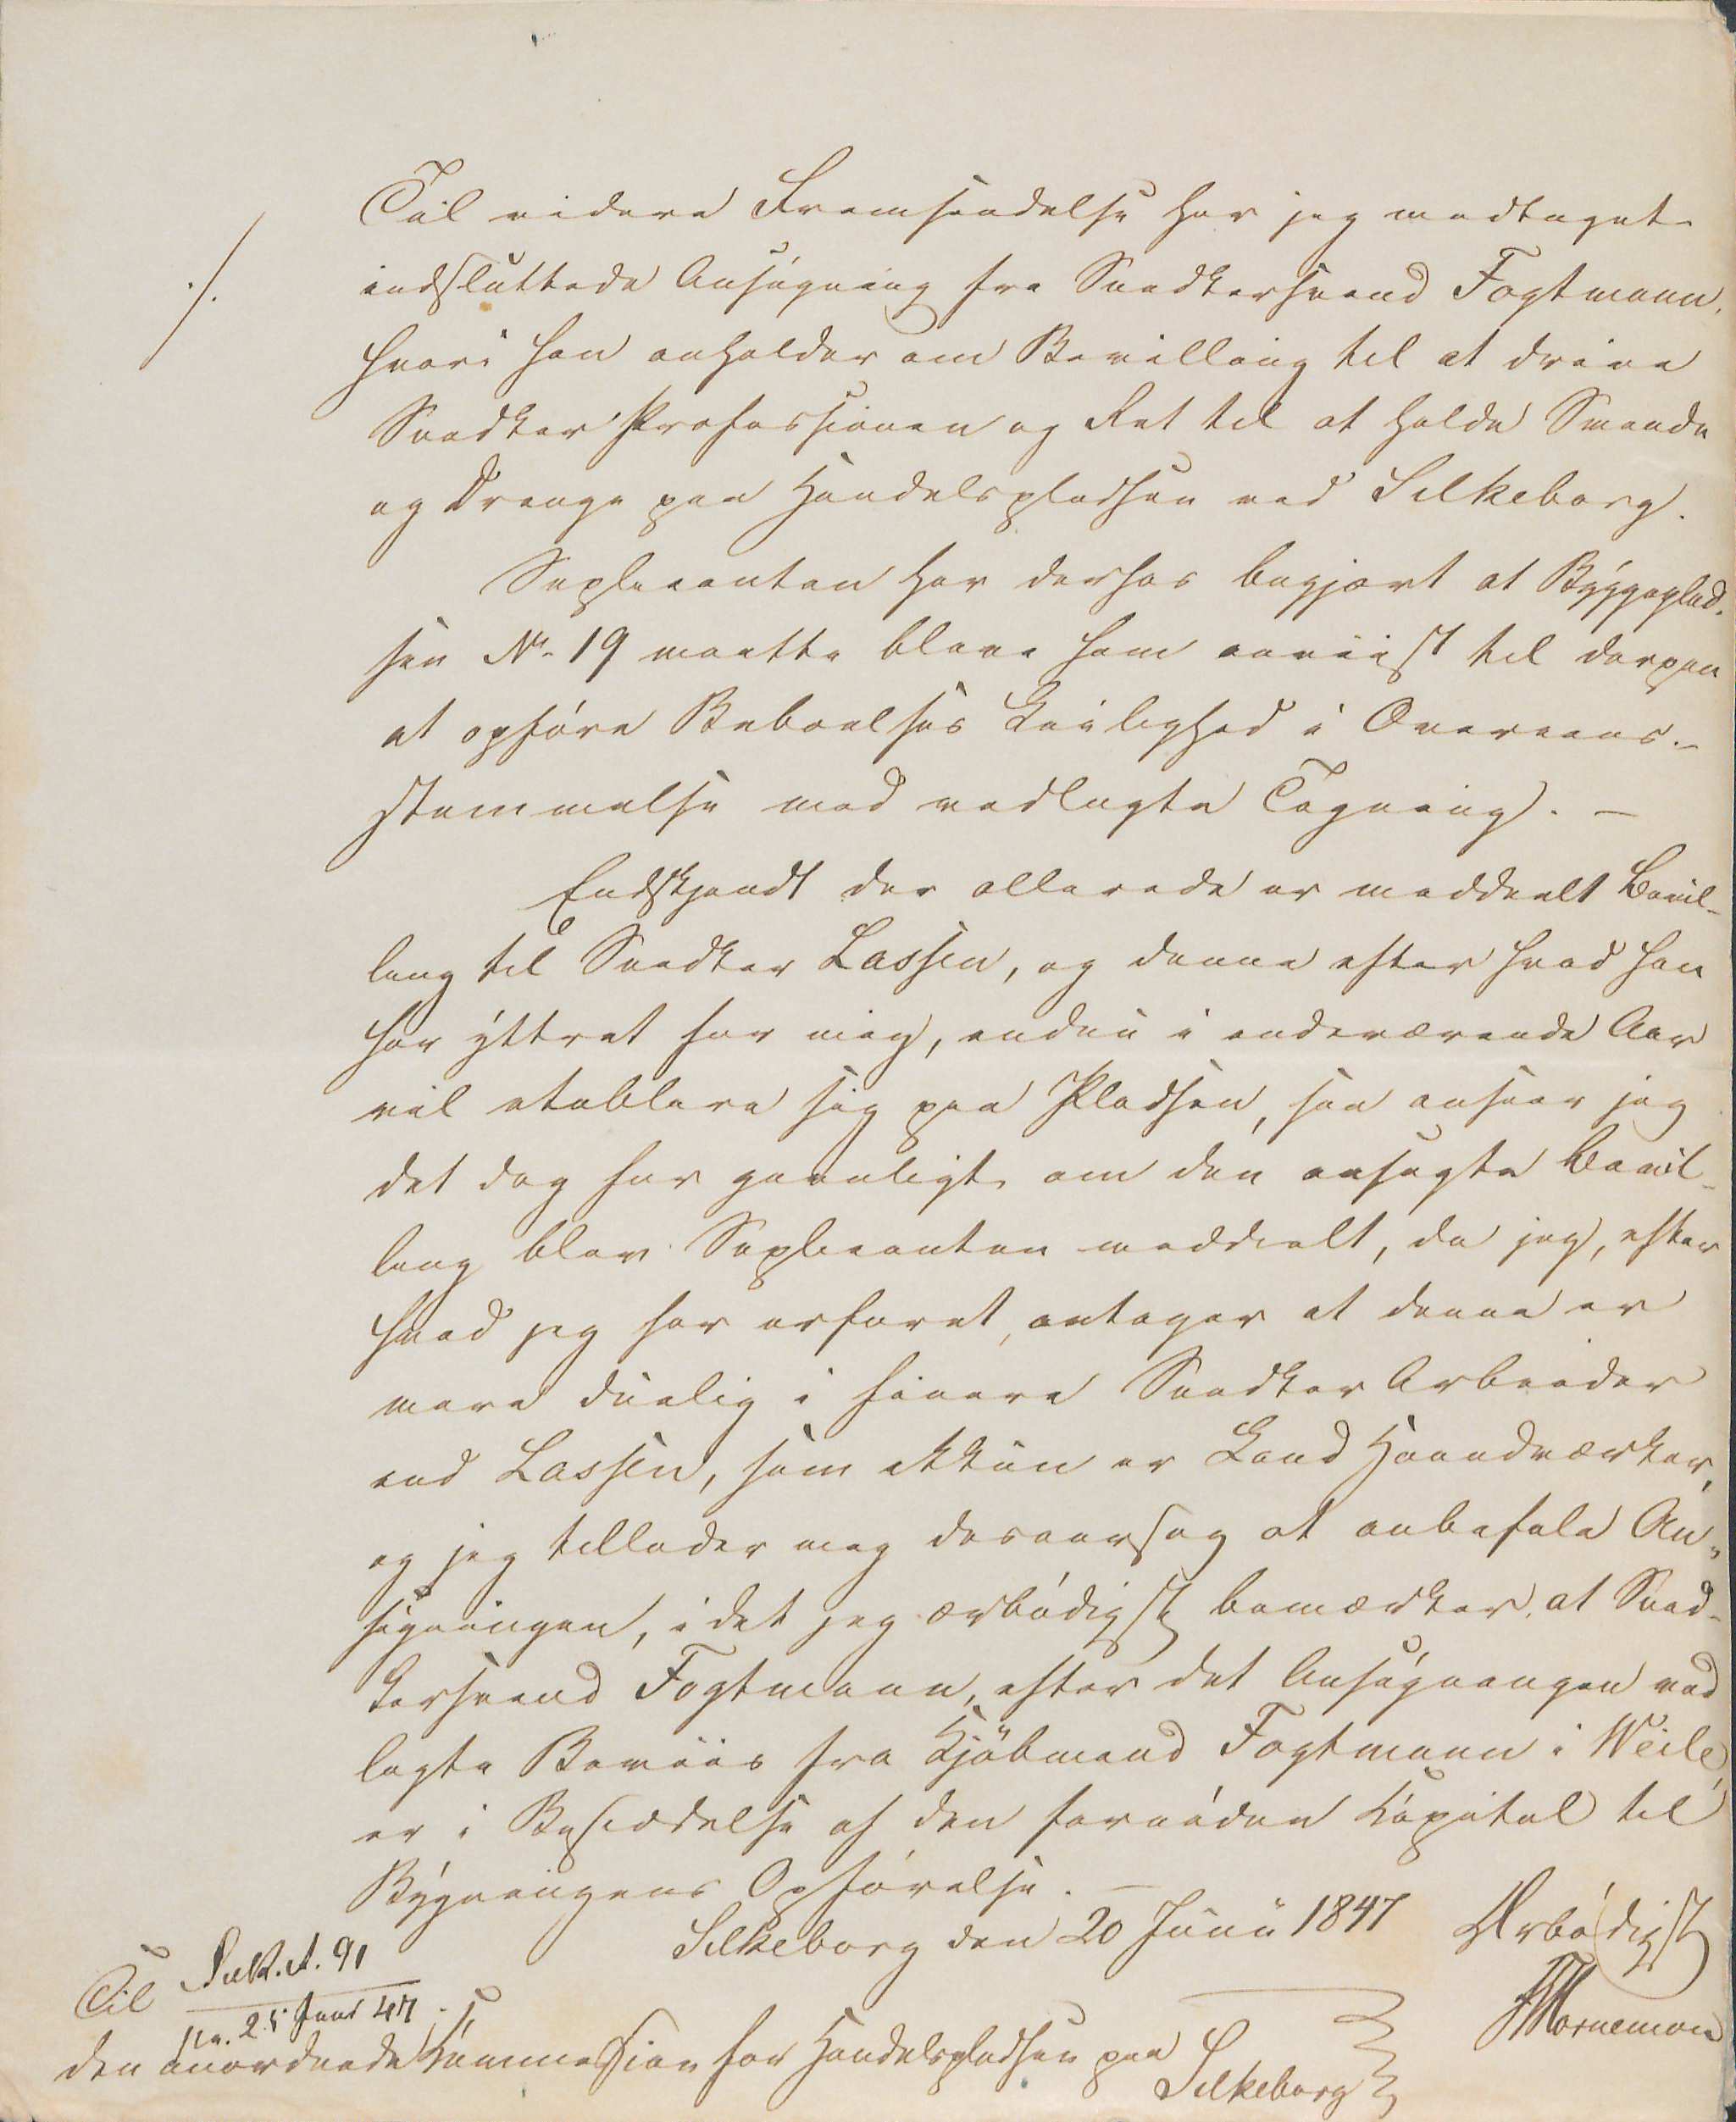 Til videre Fremsendelse har jeg modtaget
./. indsluttede Ansøgning fra Snedkersvend Fogtmann,
hvori han anholder om Bevilling til at drive
Snedker Professionen og Ret til at holde Svende
og Drenge paa Handelspladsen ved Silkeborg.
Suplicanten har derhos begjært at Byggeplad-
sen No. 19 maatte blive ham anviist til derpaa
at opføre Beboelses Leilighed i Overeens-
stemmelse med vedlagte Tegning. -
Endskjøndt der allerede er meddeelt Bevil-
ling til Snedker Lassen, og denne efter hvad han
har yttret for mig, endnu i indeværende Aar
vil etablere sig paa Pladsen, saa anseer jeg
det dog for gavnligt om den ansøgte Bevil-
ling blev Suplicanten meddeelt, da jeg, efter
hvad jeg har erfaret, antager at denne er
mere duelig i finere Snedker Arbeider
end Lassen, som ikkun er Land Haandværker,
og jeg tillader mig desaarsag at anbefale An-
søgningen, idet jeg ærbødigst bemærker, at Sned-
kersvend Fogtmann, efter det Ansøgningen ved
lagte Beviis fra Kjøbmand Fogtmann i Weile,
er i Besiddelse af den fornødne Kapital til
Bygningens Opførelse. -
Silkeborg den 20 Junii 1847 Ærbødigst
Til
Silk. A. 91
pr. 25 Juni 47.
Hornemann
den anordnede Commission for Handelspladsen paa
Silkeborg